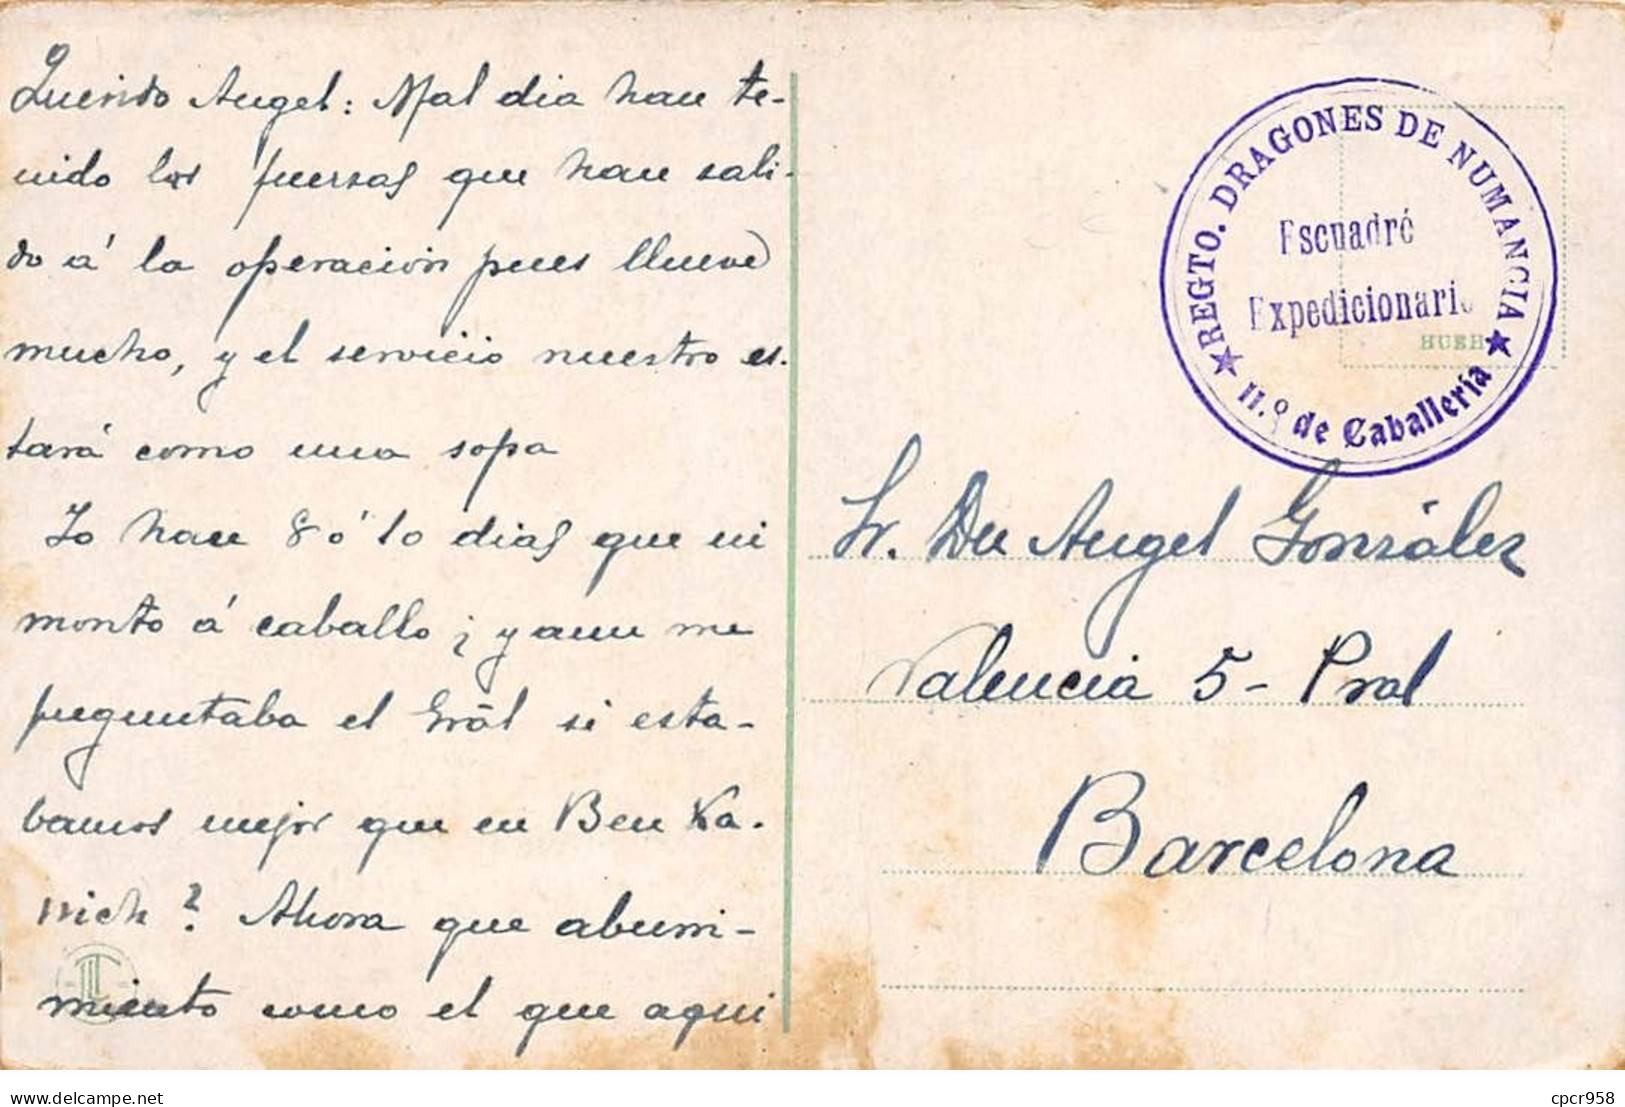 Querido Angel: Mal dia han te-
nido las fuersas que han sali-
do á la operación pues llueve
mucho, y el servicio nuestro es-
tará como una sopa
Yo hace 8 ó 10 dias que ni
monto á caballo ¡y aun me
preguntaba el Gràl si esta-
bamos mejor que en Ben Ka-
rrich? Ahora que aburri-
miento como el que aqui
REGTO. DRAGONES DE NUMANCIA
Escuadró
Expedicionario
11.º de Caballería
Sr. Dn Angel González
Valencia 5- Pral
Barcelona
delcampe.net
cpcr958